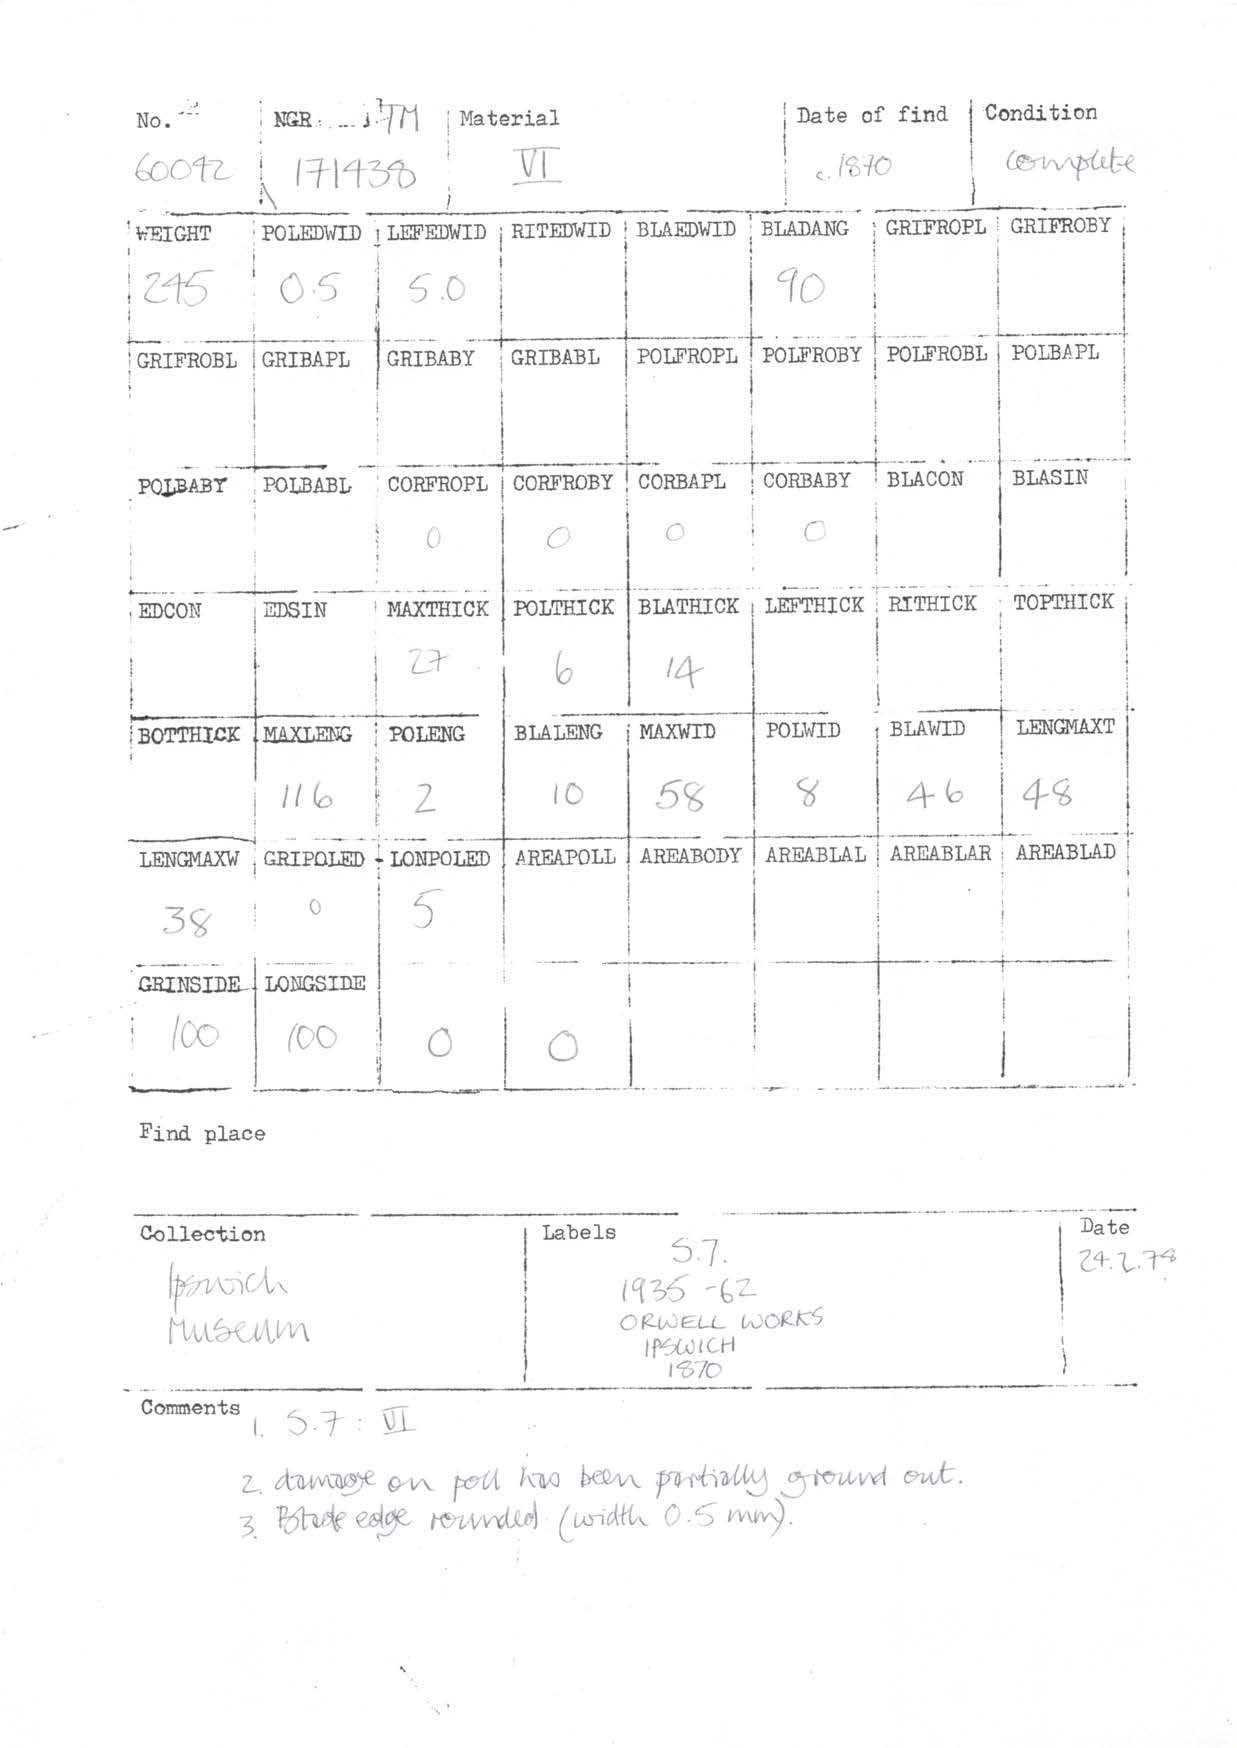 No. NGR TM Material Date of find Condition
60042 171438 VI c.1870 complete
WEIGHT POLEDWID LEFEDWID RITEDWID BLAEDWID BLADANG GRIFROPL GRIFROBY
245 0.5 5.0 90
GRIFROBL GRIBAPL GRIBABY GRIBABL POLFROPL POLFROBY POLFROBL POLBAPL
POLBABY POLBABL CORFROPL CORFROBY CORBAPL CORBABY BLACON BLASIN
0 0 0 0
EDCON EDSIN MAXTHICK POLTHICK BLATHICK LEFTHICK RITHICK TOPTHICK
27 6 14
BOTTHICK MAXLENG POLENG BLALENG MAXWID POLWID BLAWID LENGMAXT
116 2 10 58 8 46 48
LENGMAXW GRIPOLED LONPOLED AREAPOLL AREABODY AREABLAL AREABLAR AREABLAD
38 0 5
GRINSIDE LONGSIDE
100 100 0 0
Find place
Collection Labels Date
S.7. 24.2.78
Ipswich 1935-62
Museum ORWELL WORKS
IPSWICH
1870
Comments 1. S.7 : VI
2. damage on poll has been partially ground out.
3. Blade edge rounded (width 0.5 mm).